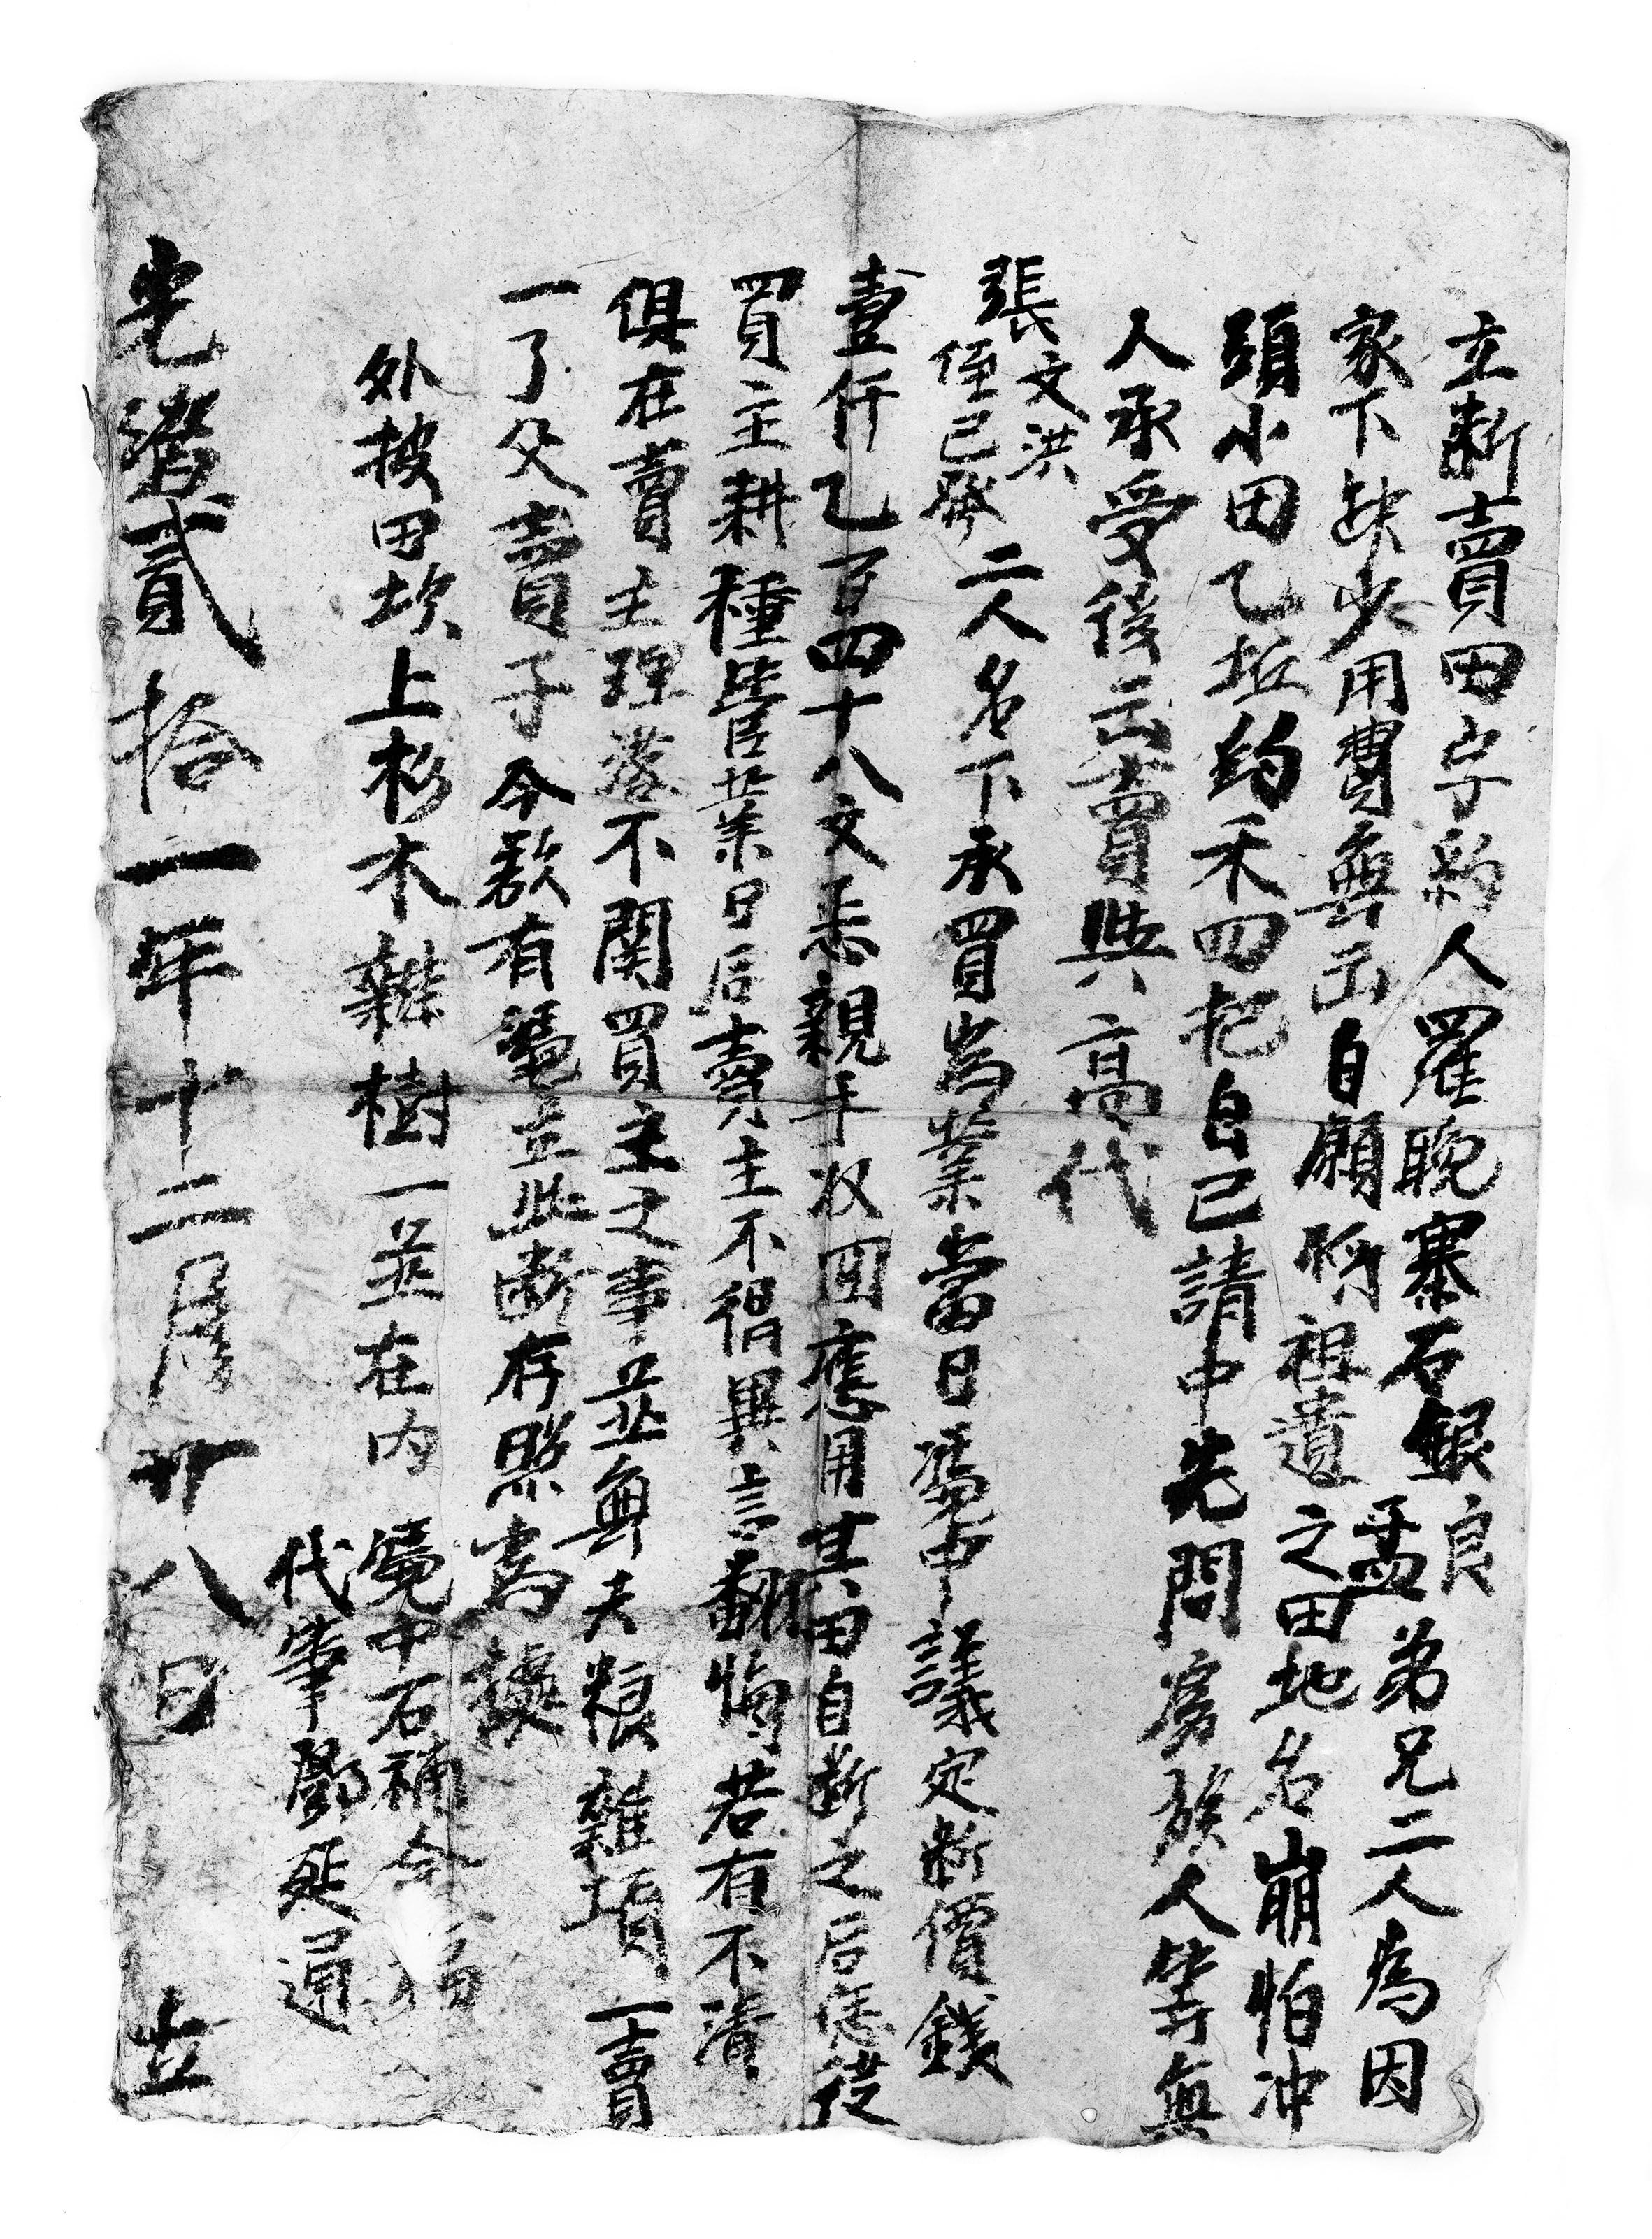 立斷賣田字約人羅晚寨石銀良孟弟兄二人為因
家下缺少用費無出自願將祖遺之田地名崩怕冲
頭小田乙坵約禾四把自己請中先問房族人等無
人承受後云賣與高代
張文洪侄已發二人名下承買為業當日憑中議定斷價錢
壹仟乙百四十八文悉親手收回應用其田自斷之后恁從
買主耕種管業日后賣主不得異言翻悔若有不清
俱在賣主理落不關買主之事並無夫粮雜項一賣
一了父賣子今欲有憑立此斷存照為據
外披田坎上杉木雜樹一並在內 憑中石補
代筆鄧廷通
光緒貳拾一年十二月廿八日 立